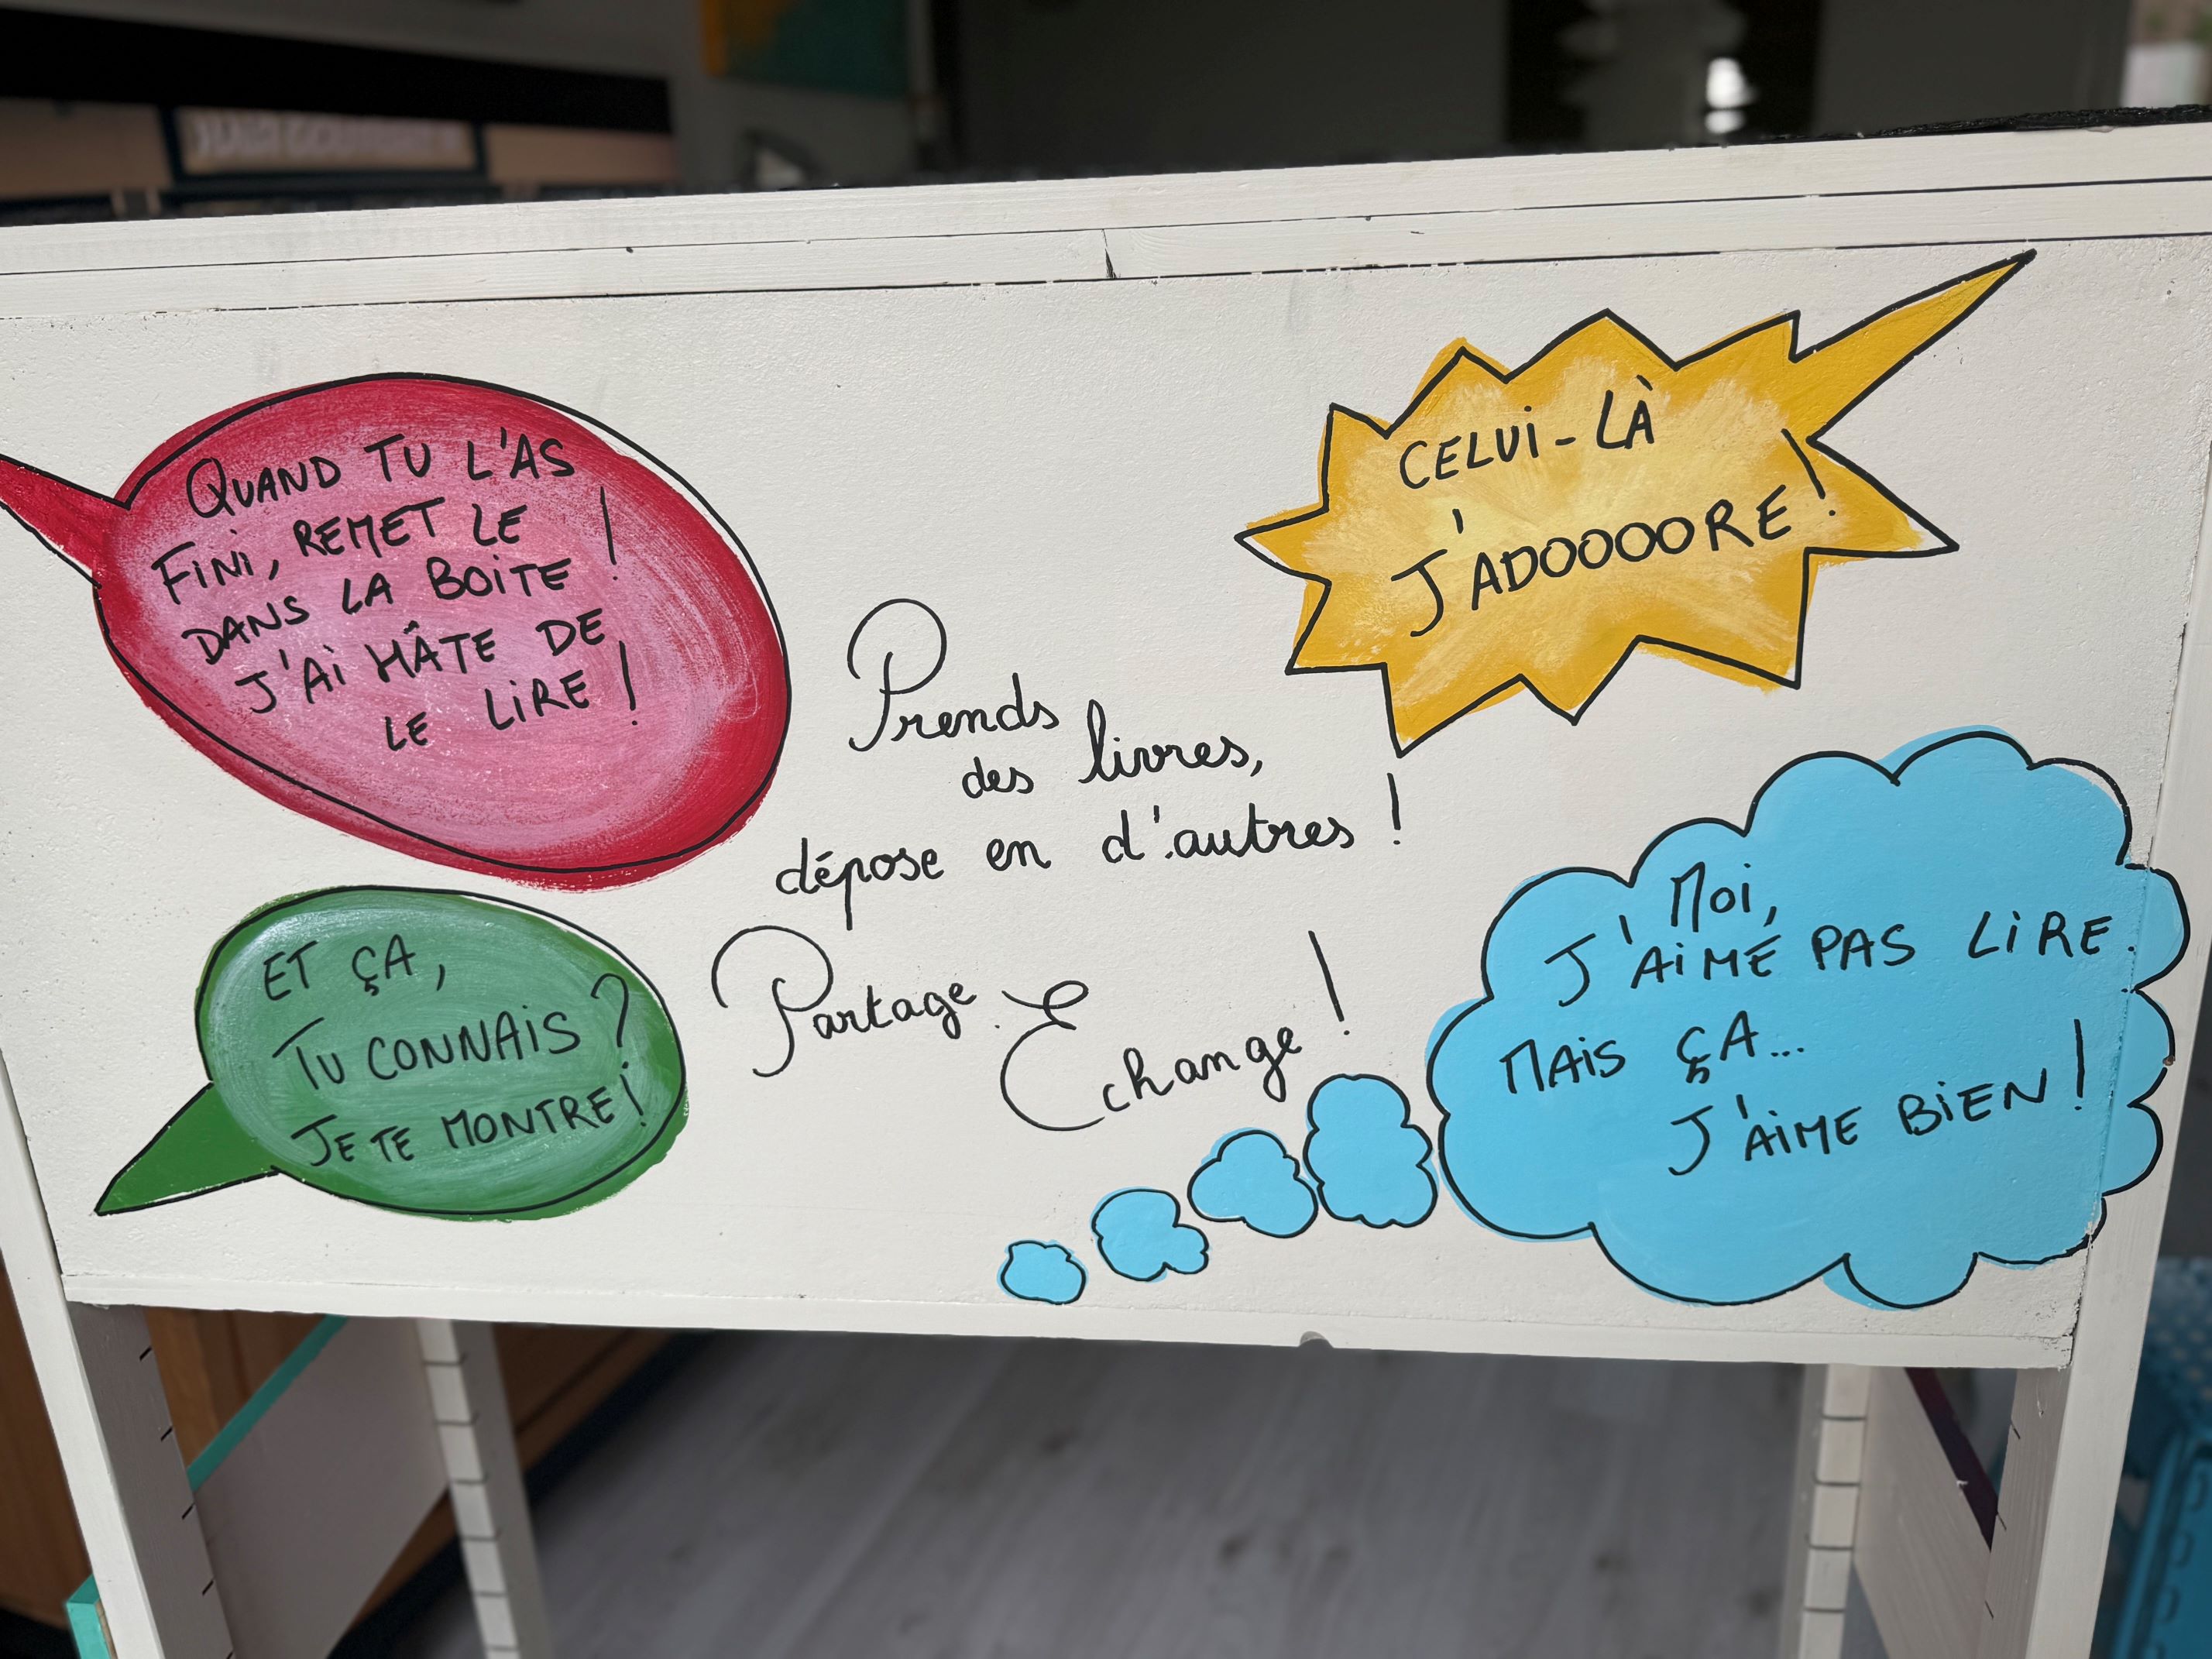 QUAND TU L'AS
FINI, REMET LE
DANS LA BOITE !
J'AI HÂTE DE
LE LIRE !
CELUI-LÀ
J'ADOOOORE !
Prends
des livres,
dépose en d'autres !
Partage.
Echange !
ET ÇA,
TU CONNAIS ?
JE TE MONTRE !
MOI,
J'AIME PAS LIRE.
MAIS ÇA...
J'AIME BIEN !